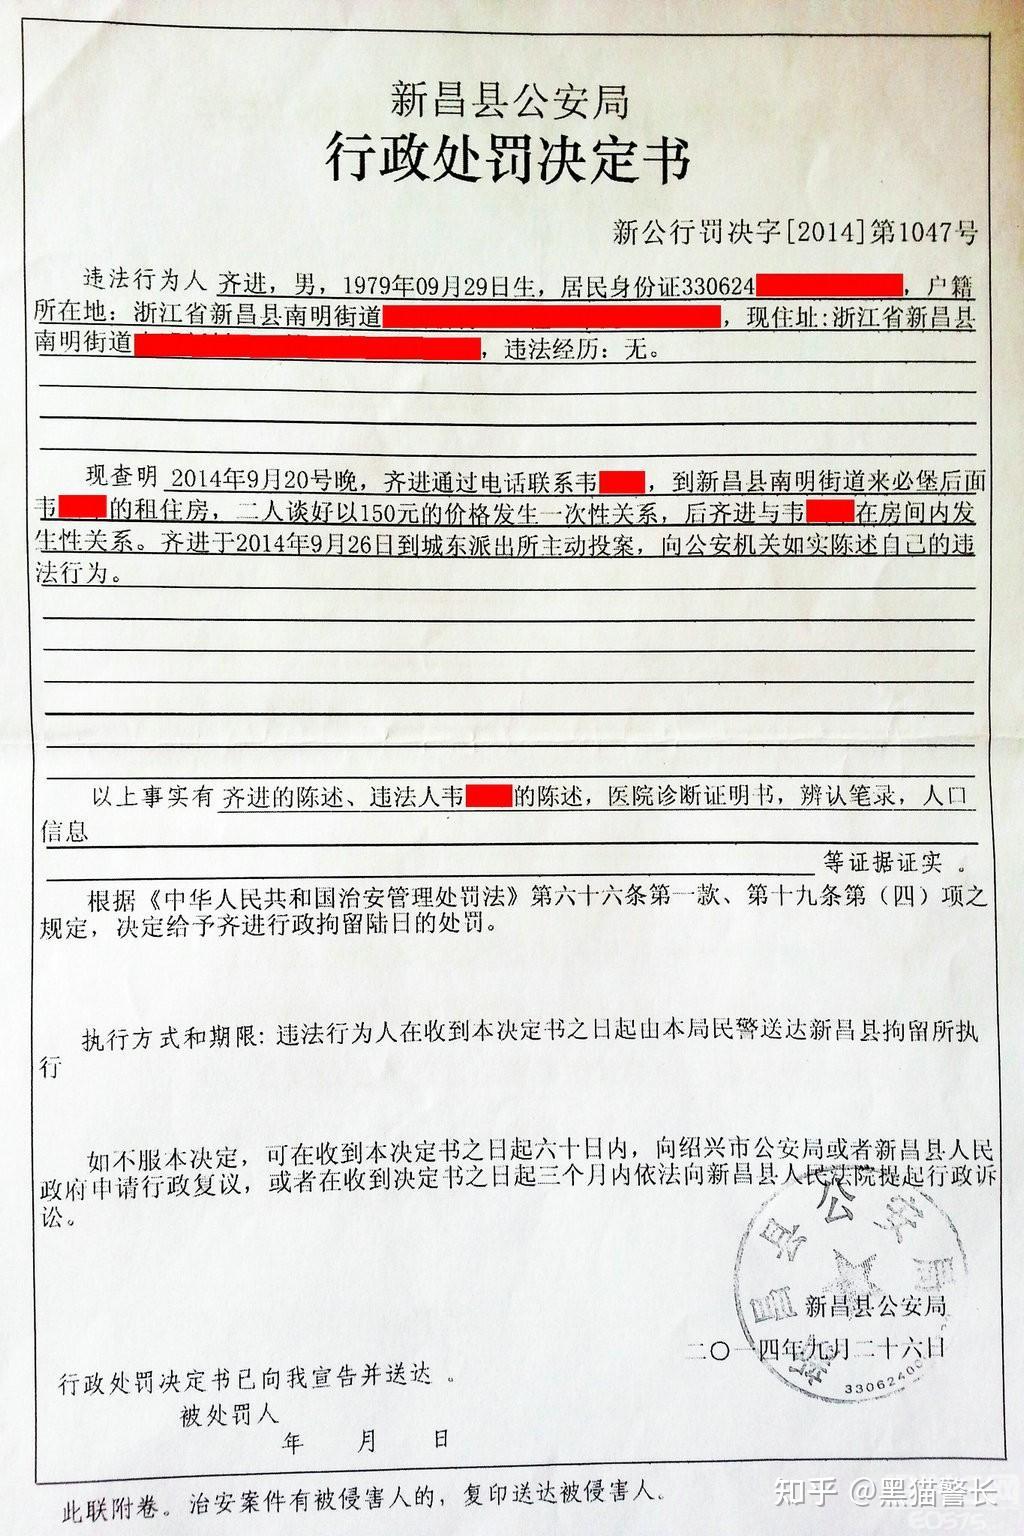 新昌县公安局
行政处罚决定书
新公行罚决字[2014]第1047号
违法行为人 齐进，男，1979年09月29日生，居民身份证330624 ，户籍
所在地：浙江省新昌县南明街道 ，现住址:浙江省新昌县
南明街道 ，违法经历：无。
现查明 2014年9月20号晚，齐进通过电话联系韦 ，到新昌县南明街道来必堡后面
韦 的租住房，二人谈好以150元的价格发生一次性关系，后齐进与韦 在房间内发
生性关系。齐进于2014年9月26日到城东派出所主动投案，向公安机关如实陈述自己的违
法行为。
以上事实有 齐进的陈述、违法人韦 的陈述，医院诊断证明书，辨认笔录，人口
信息
等证据证实 。
根据《中华人民共和国治安管理处罚法》第六十六条第一款、第十九条第（四）项之
规定，决定给予齐进行政拘留陆日的处罚。
执行方式和期限: 违法行为人在收到本决定书之日起由本局民警送达新昌县拘留所执
行
如不服本决定，可在收到本决定书之日起六十日内，向绍兴市公安局或者新昌县人民
政府申请行政复议，或者在收到决定书之日起三个月内依法向新昌县人民法院提起行政诉
讼。
新昌县公安局
新昌县公安局
二〇一四年九月二十六日
33062400
行政处罚决定书已向我宣告并送达 。
被处罚人
年 月 日
此联附卷。治安案件有被侵害人的，复印送达被侵害人.
知乎 @黑猫警长